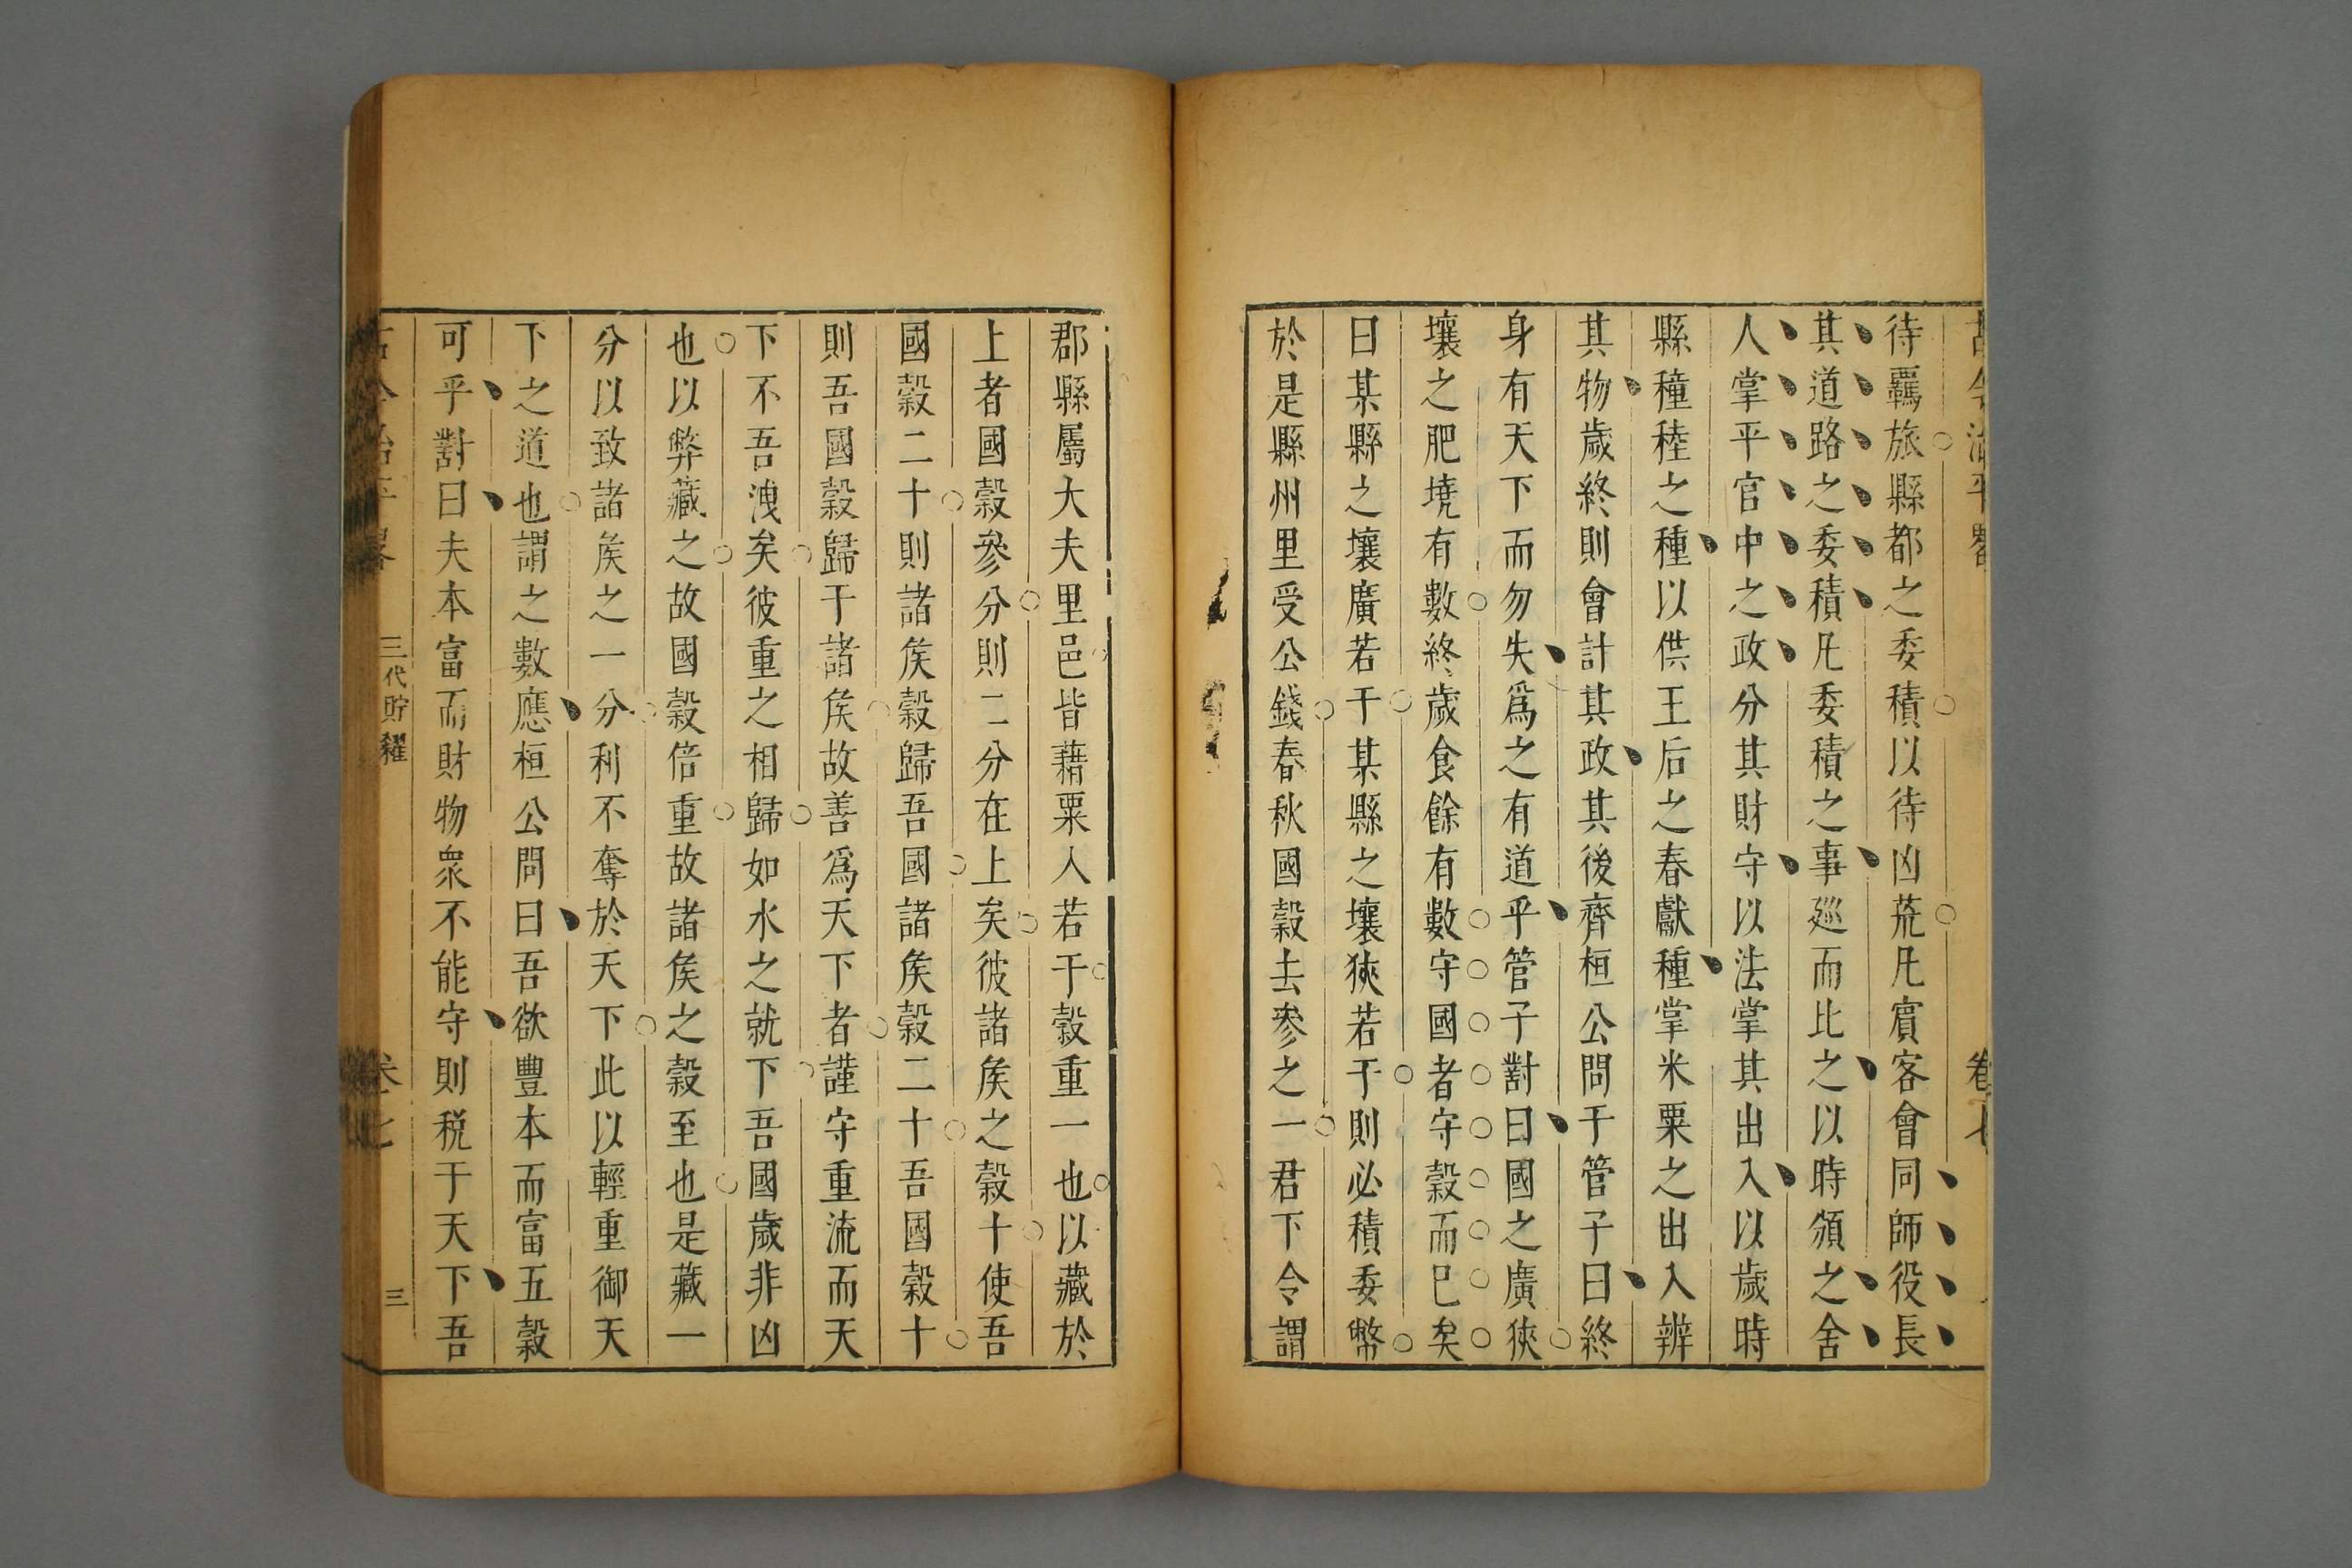 古今治平畧
卷七
待羈旅縣都之委積以待凶荒凡賓客會同師役長
其道路之委積凡委積之事廵而比之以時頒之舍
人掌平宫中之政分其財守以法掌其出入以歲時
縣穜稑之種以供王后之春獻種掌米粟之出入辨
其物歲終則會計其政其後齊桓公問于管子曰終
身有天下而勿失爲之有道乎管子對曰國之廣狹
壤之肥墝有數終歲食餘有數守國者守穀而已矣
曰某縣之壤廣若干某縣之壤狹若干則必積委幣
於是縣州里受公錢春秋國穀去參之一君下令謂
郡縣屬大夫里邑皆藉粟入若干穀重一也以藏於
上者國穀參分則二分在上矣彼諸侯之穀十使吾
國穀二十則諸侯穀歸吾國諸侯穀二十吾國穀十
則吾國穀歸于諸侯故善爲天下者謹守重流而天
下不吾洩矣彼重之相歸如水之就下吾國歲非凶
也以弊藏之故國穀倍重故諸侯之穀至也是藏一
分以致諸侯之一分利不奪於天下此以輕重御天
下之道也謂之數應桓公問曰吾欲豐本而富五穀
可乎對曰夫本富而財物衆不能守則税于天下吾
古今治平畧
三代貯糴
卷七
三